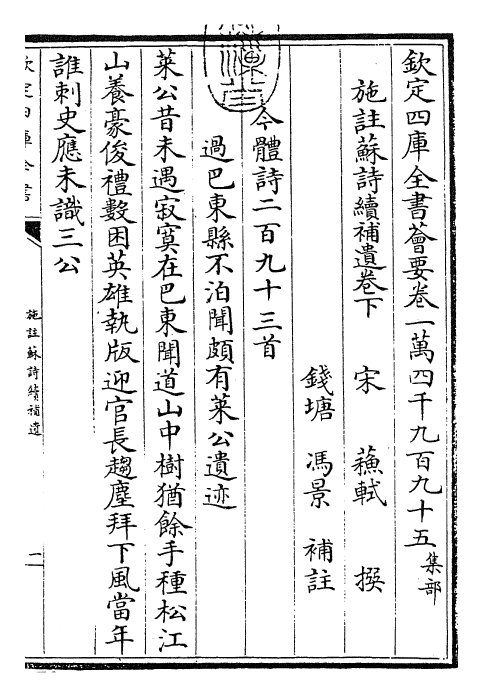 欽定四庫全書薈要卷一萬四千九百九十五集部
施註蘇詩續補遺卷下
宋　蘓軾　撰
錢塘　馮景　補註
今體詩二百九十三首
過巴東縣不泊聞頗有萊公遺迹
萊公昔未遇寂寞在巴東聞道山中樹猶餘手種松江
山養豪俊禮數困英雄執版迎官長趨塵拜下風當年
誰刺史應未識三公
欽定四庫全書
施註蘇詩續補遺